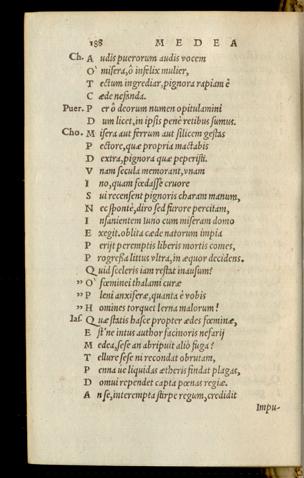 188 M E D E A
Ch. A udis puerorum audis vocem
O' misera, ô infelix mulier,
T ectum ingrediar, pignora rapiam è
C æde nefanda.
Puer. P er ô deorum numen opitulamini
D um licet, in ipsis penè retibus sumus.
Cho. M isera aut ferrum aut silicem gestas
P ectore, quæ propria mactabis
D extra, pignora quæ peperisti.
V nam secula memorant, vnam
I no, quam fœdasse cruore
S ui recensent pignoris charam manum,
N ec spontè, diro sed furore percitam,
I nsanientem Iuno cum miseram domo
E xegit. oblita cæde natorum impia
P erijt peremptis liberis mortis comes,
P rogressa littus vltra, in æquor decidens.
Q uid sceleris iam restat inausum?
„ O' fœminei thalami curæ
„ P leni anxiferæ, quanta è vobis
„ H omines torquet lerna malorum!
Ias. Q uæ statis hasce propter ædes fœminæ,
E st'ne intus author facinoris nefarij
M edea, sese an abripuit aliò fuga?
T ellure sese ni recondat obrutam,
P enna ue liquidas ætheris findat plagas,
D omui rependet capta pœnas regiæ.
A n se, interempta stirpe regum, credidit
Impu-